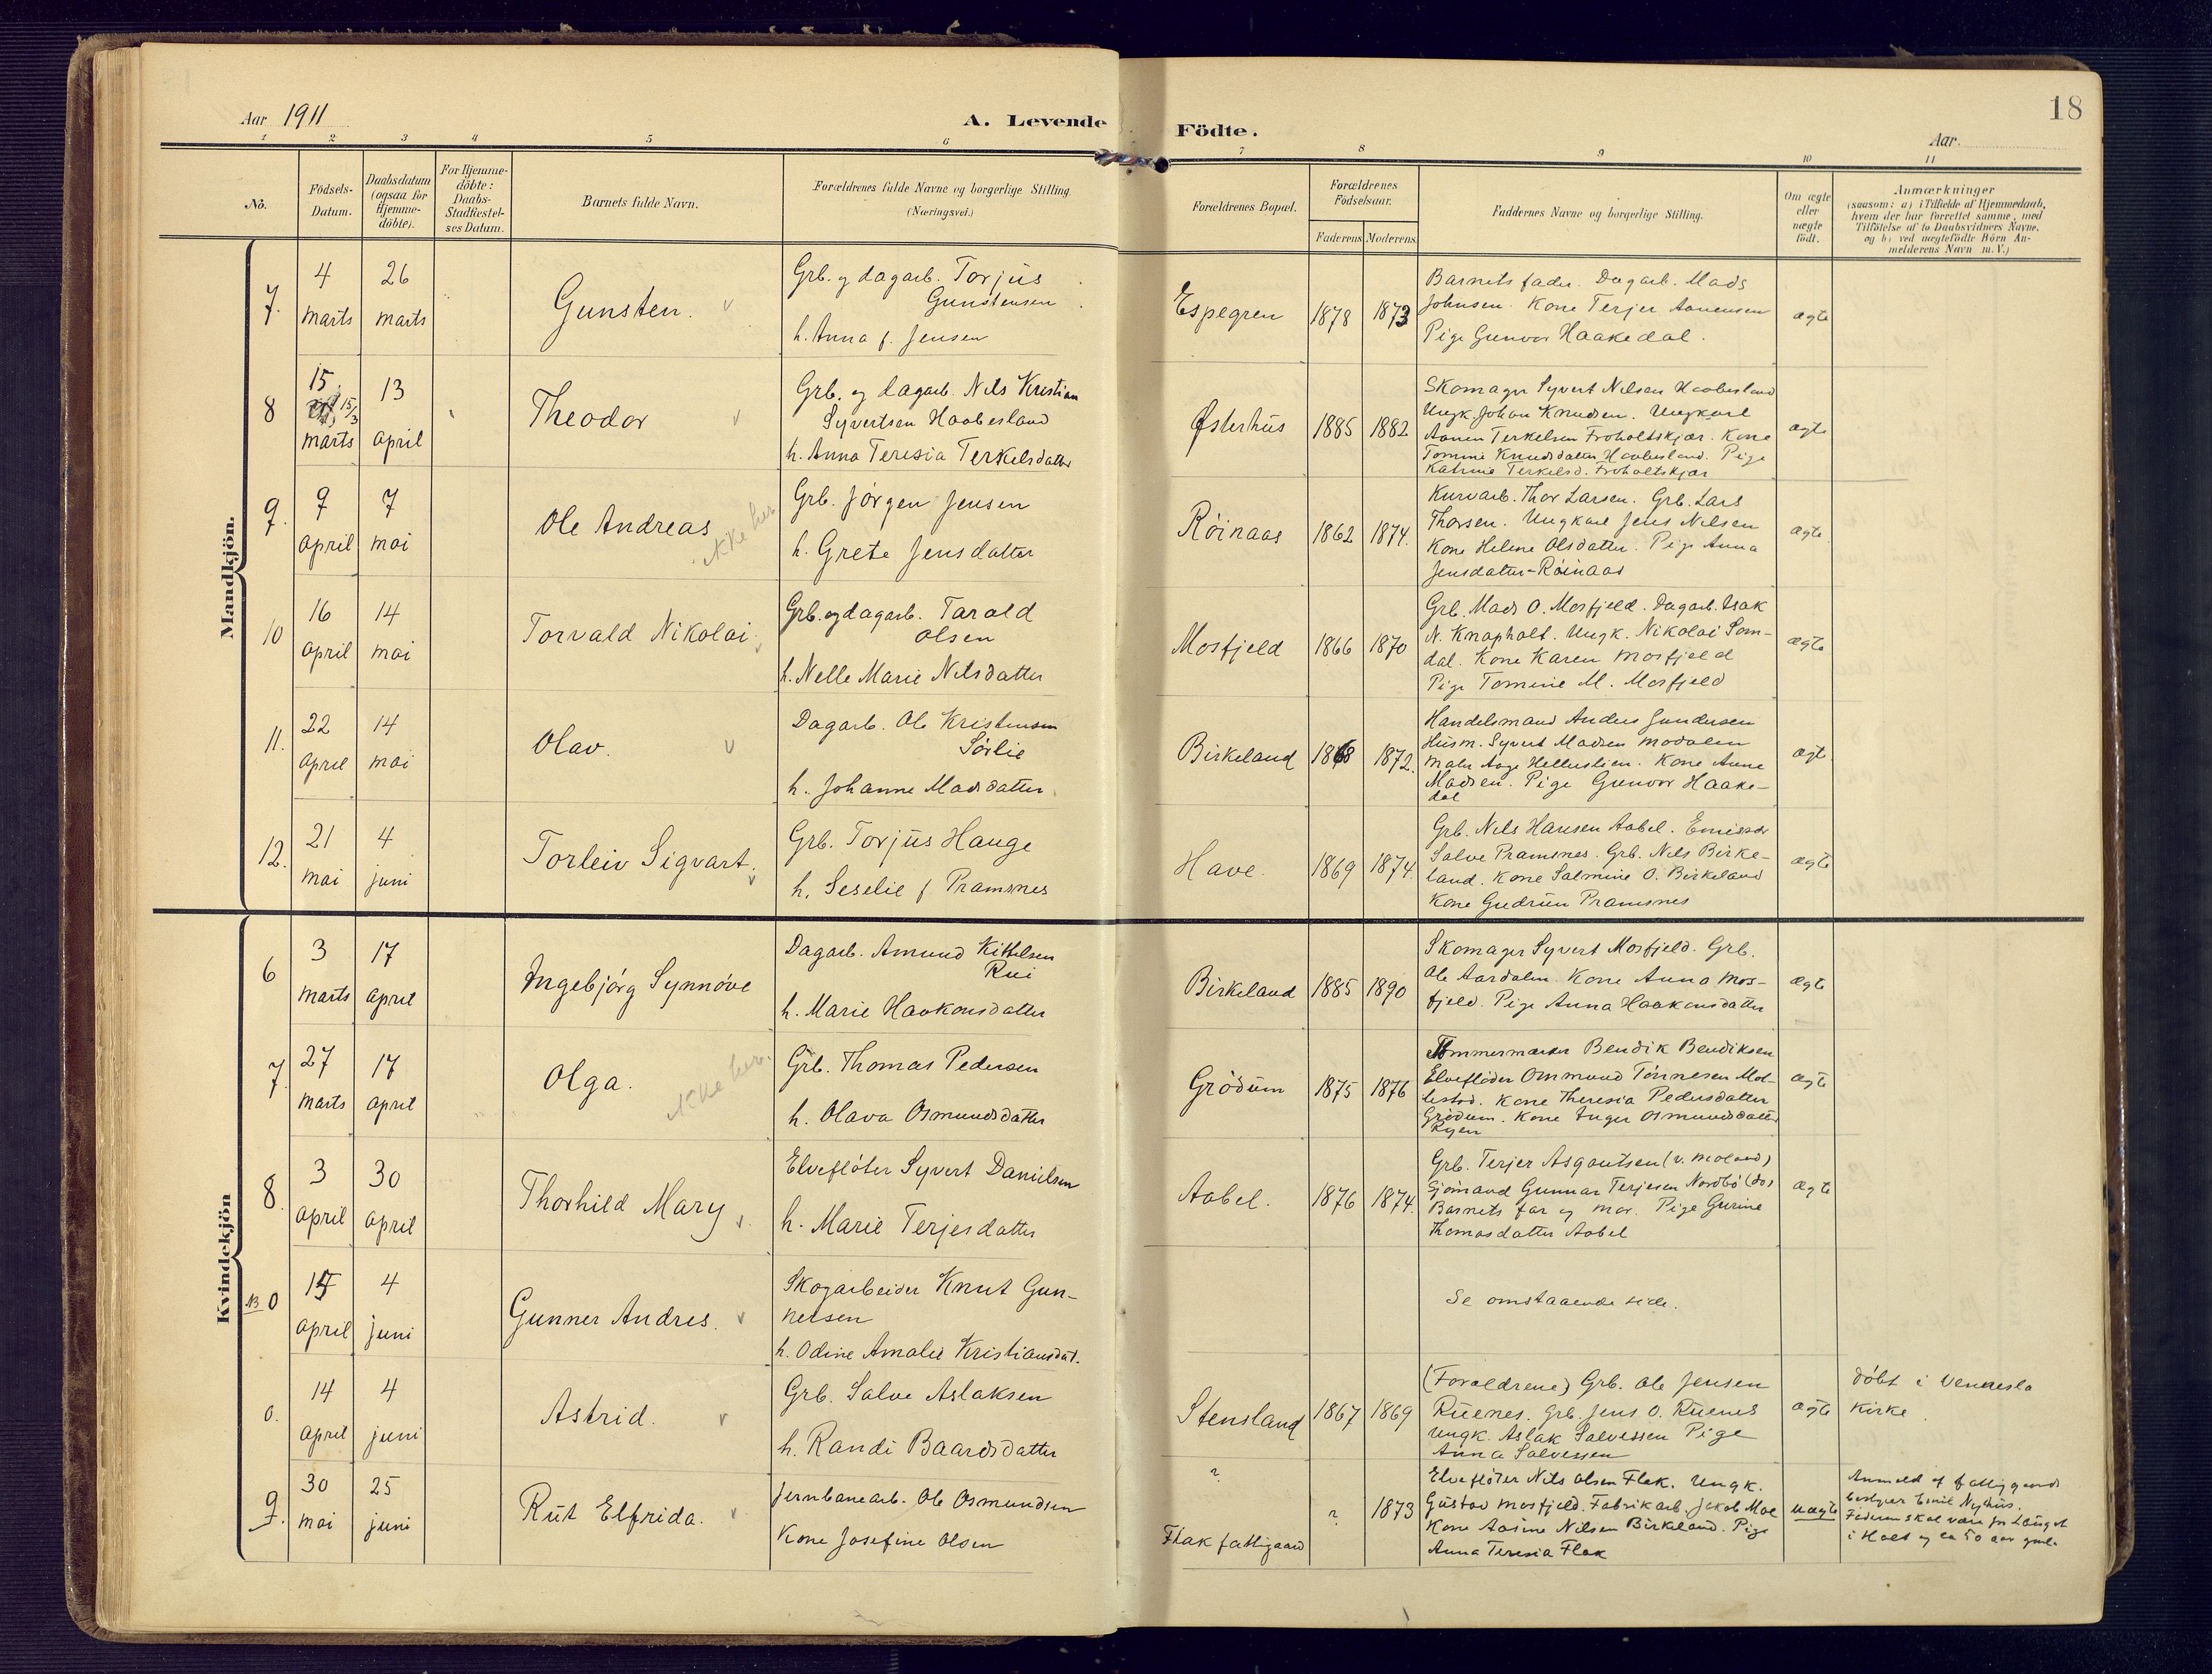 18
Aar 1911
A. Levende Födte.
Aar.
1 2 3 4 5 6 7 8 9 10 11
No.
Födsels-Datum.
Daabsdatum (ogsaa for Hjemme-döbte).
For Hjemme-döbte: Daabs-Stadfæstel-ses Datum.
Barnets fulde Navn.
Forældrenes fulde Navne og borgerlige Stilling.
(Næringsvei.)
Forældrenes Bopæl.
Forældrenes Födselsaar.
Faderens Moderens
Faddernes Navne og borgerlige Stilling.
Om ægte eller uægte födt.
Anmærkninger
(saasom: a) i Tilfælde af Hjemmedaab,
hvem der har forrettet samme, med
Tilföielse af to Daabsvidners Navne.
og b) ved uægtefödte Börn An-
melderens Navn m. V.)
Mandkjön.
7.
4 marts
26 marts
Gunsten.
Grb. og dagarb. Torjus
Gunstensen
h. Anna f. Jensen
Espegren
1878
1873
Barnets fader. Dagarb. Mads
Johnsen. Kone Terjer Aanensen
Pige Gunvor Haakedal.
ægte
8
15 15/3 marts
13 april
Theodor
Grb. og dagarb. Nils Kristian
Syvertsen Haabesland
h. Anna Teresia Terkelsdatter
Østerhus
1885
1882
Skomager Syvert Nilsen Haabesland
Ungk. Johan Knudsen. Ungkarl
Aanen Terkelsen Froholtskjær. Kone
Tomine Knudsdatter Haabesland. Pige
Katrine Terkelsd. Froholtskjær
ægte
9.
9 april
7 mai
Ole Andreas
ikke her
Grb. Jörgen Jensen
h. Grete Jensdatter
Röinaas
1862
1874.
Kurvarb. Thor Larsen. Grb. Lars
Thorsen. Ungkarl Jens Nilsen
Kone Helene Olsdatter. Pige Anna
Jensdatter-Röinaas
ægte
10
16 april
14 mai
Torvald Nikolai
Grb. og dagarb. Tarald
Olsen
h. Nelle Marie Nilsdatter
Mosfjeld
1866
1870
Grb. Mads O. Mosfjeld. Dagarb. Isak
N. Knapholt. Ungk. Nikolai Som-
dal. Kone Karen Mosfjeld
Pige Tomine M. Mosfjeld
ægte
11.
22 april
14 mai
Olav.
Dagarb. Ole Kristensen
Sörlie
h. Johanne Madsdatter
Birkeland
1868
1872.
Handelsmand Anders Gundersen
Husm. Syvert Madsen Modalen
Maler Aage Helleslien. Kone Anne
Madsen. Pige Gunvor Haake-
dal
ægte
12.
21 mai
4 juni
Torleiv Sigvart.
Grb. Torjus Hauge
h. Seselie f Pramsnes
Have.
1869
1874.
Grb. Nils Hansen Aabel. Emissær
Salve Pramsnes. Grb. Nils Birke-
land. Kone Salmine O. Birkeland
Kone Gudrun Pramsnes
ægte
Kvindekjön
6
3 marts
17 april
Ingebjörg Synnöve
Dagarb. Amund Kittelsen
Rui
h. Marie Haakonsdatter
Birkeland
1885
1890
Skomager Syvert Mosfjeld. Grb.
Ole Aardalen. Kone Anna Mos-
fjeld. Pige Anna Haakonsdatter
ægte
7.
27 marts
17 april
Olga.
ikke her.
Grb. Thomas Pedersen
h. Olava Osmundsdatter
Grödum
1875
1876
Tömmermærker Bendik Bendiksen
Elveflöder Ommund Tönnesen Mol-
lestad. Kone Theresia Pedersdatter
Grödum. Kone Inger Osmundsdatter
Ryen
ægte
8.
3 april
30 april
Thorhild Mary
Elveflöter Syvert Danielsen
h. Marie Terjesdatter
Aabel.
1876
1874.
Grb. Terjer Asgautsen (V. Moland)
Sjömand Gunnar Terjesen Nordbö (do)
Barnets far og mor. Pige Gurine
Thomasdatter Aabel
ægte
NB 0
15 april
4 juni
Gunner Andres.
Skogarbeider Knut Gun-
nersen
h. Odine Amalie Kristiansdat.
Se omstaaende side.
0.
14 april
4 juni
Astrid.
Grb. Salve Aslaksen
h. Randi Baardsdatter
Stensland
1867
1869
(Forældrene) Grb. Ole Jensen
Ruenes. Grb. Jens O. Ruenes
Ungk. Aslak Salvessen Pige
Anna Salvessen
ægte
döbt i Vennesla
Kirke
9.
30 mai
25 juni
Rut Elfrida.
Jernbanearb. Ole Osmundsen
Kone Josefine Olsen
?
Flak fattigaard
?
1873
Elveflöter Nils Olsen Flak. Ungk.
Gustav Mosfjeld. Fabrikarb. Jakob Moe
Kone Aasine Nilsen Birkeland. Pige
Anna Teresia Flak
uægte
Anmeld af fattiggaards
bestyrer Emil Nyhus.
Faderen skal være fra
i Holt og ca 50 aar gml.